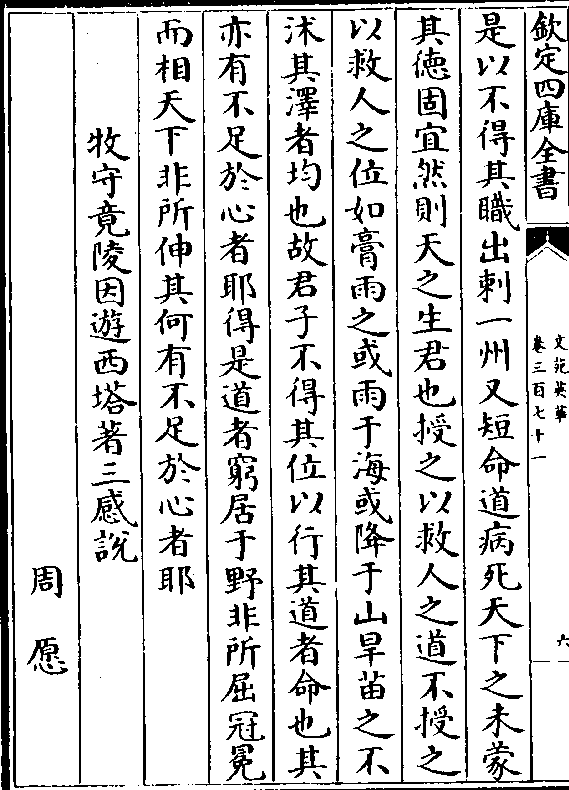 欽定四庫全書
文苑英華
卷三百七十一
六
是以不得其職出刺一州又短命道病死天下之未蒙
其徳固宜然則天之生君也授之以救人之道不授之
以救人之位如膏雨之或雨于海或降于山旱苗之不
沐其澤者均也故君子不得其位以行其道者命也其
亦有不足於心者耶得是道者窮居于野非所屈冠冕
而相天下非所伸其何有不足於心者耶
牧守竟陵因遊西塔著三感說
周愿